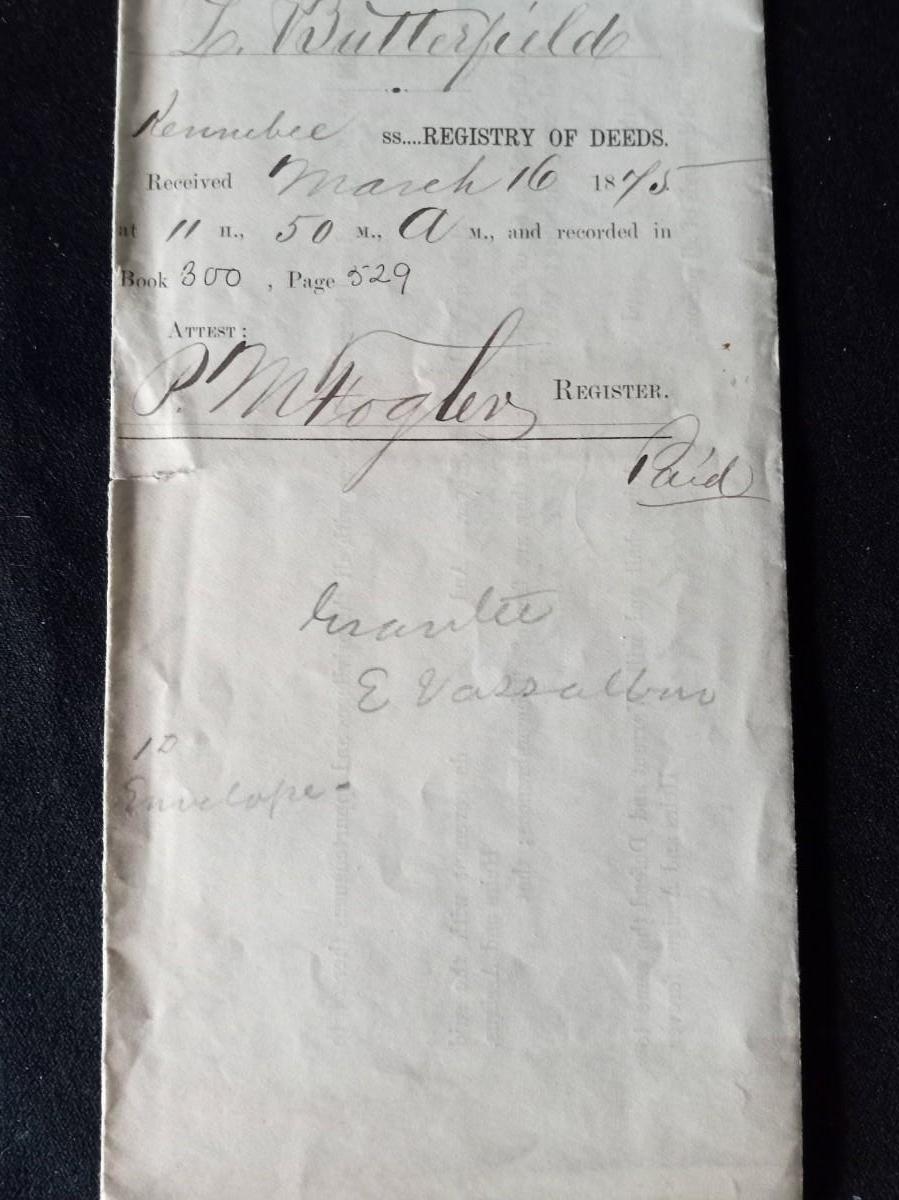 L. Butterfield
Kennebec ss....REGISTRY OF DEEDS.
Received March 16 1875.
at 11 H., 50 M., A M., and recorded in
Book 300 , Page 529
ATTEST:
P. M. Fogler REGISTER.
Paid
Grantee
E Vassalboro
10
Envelope-